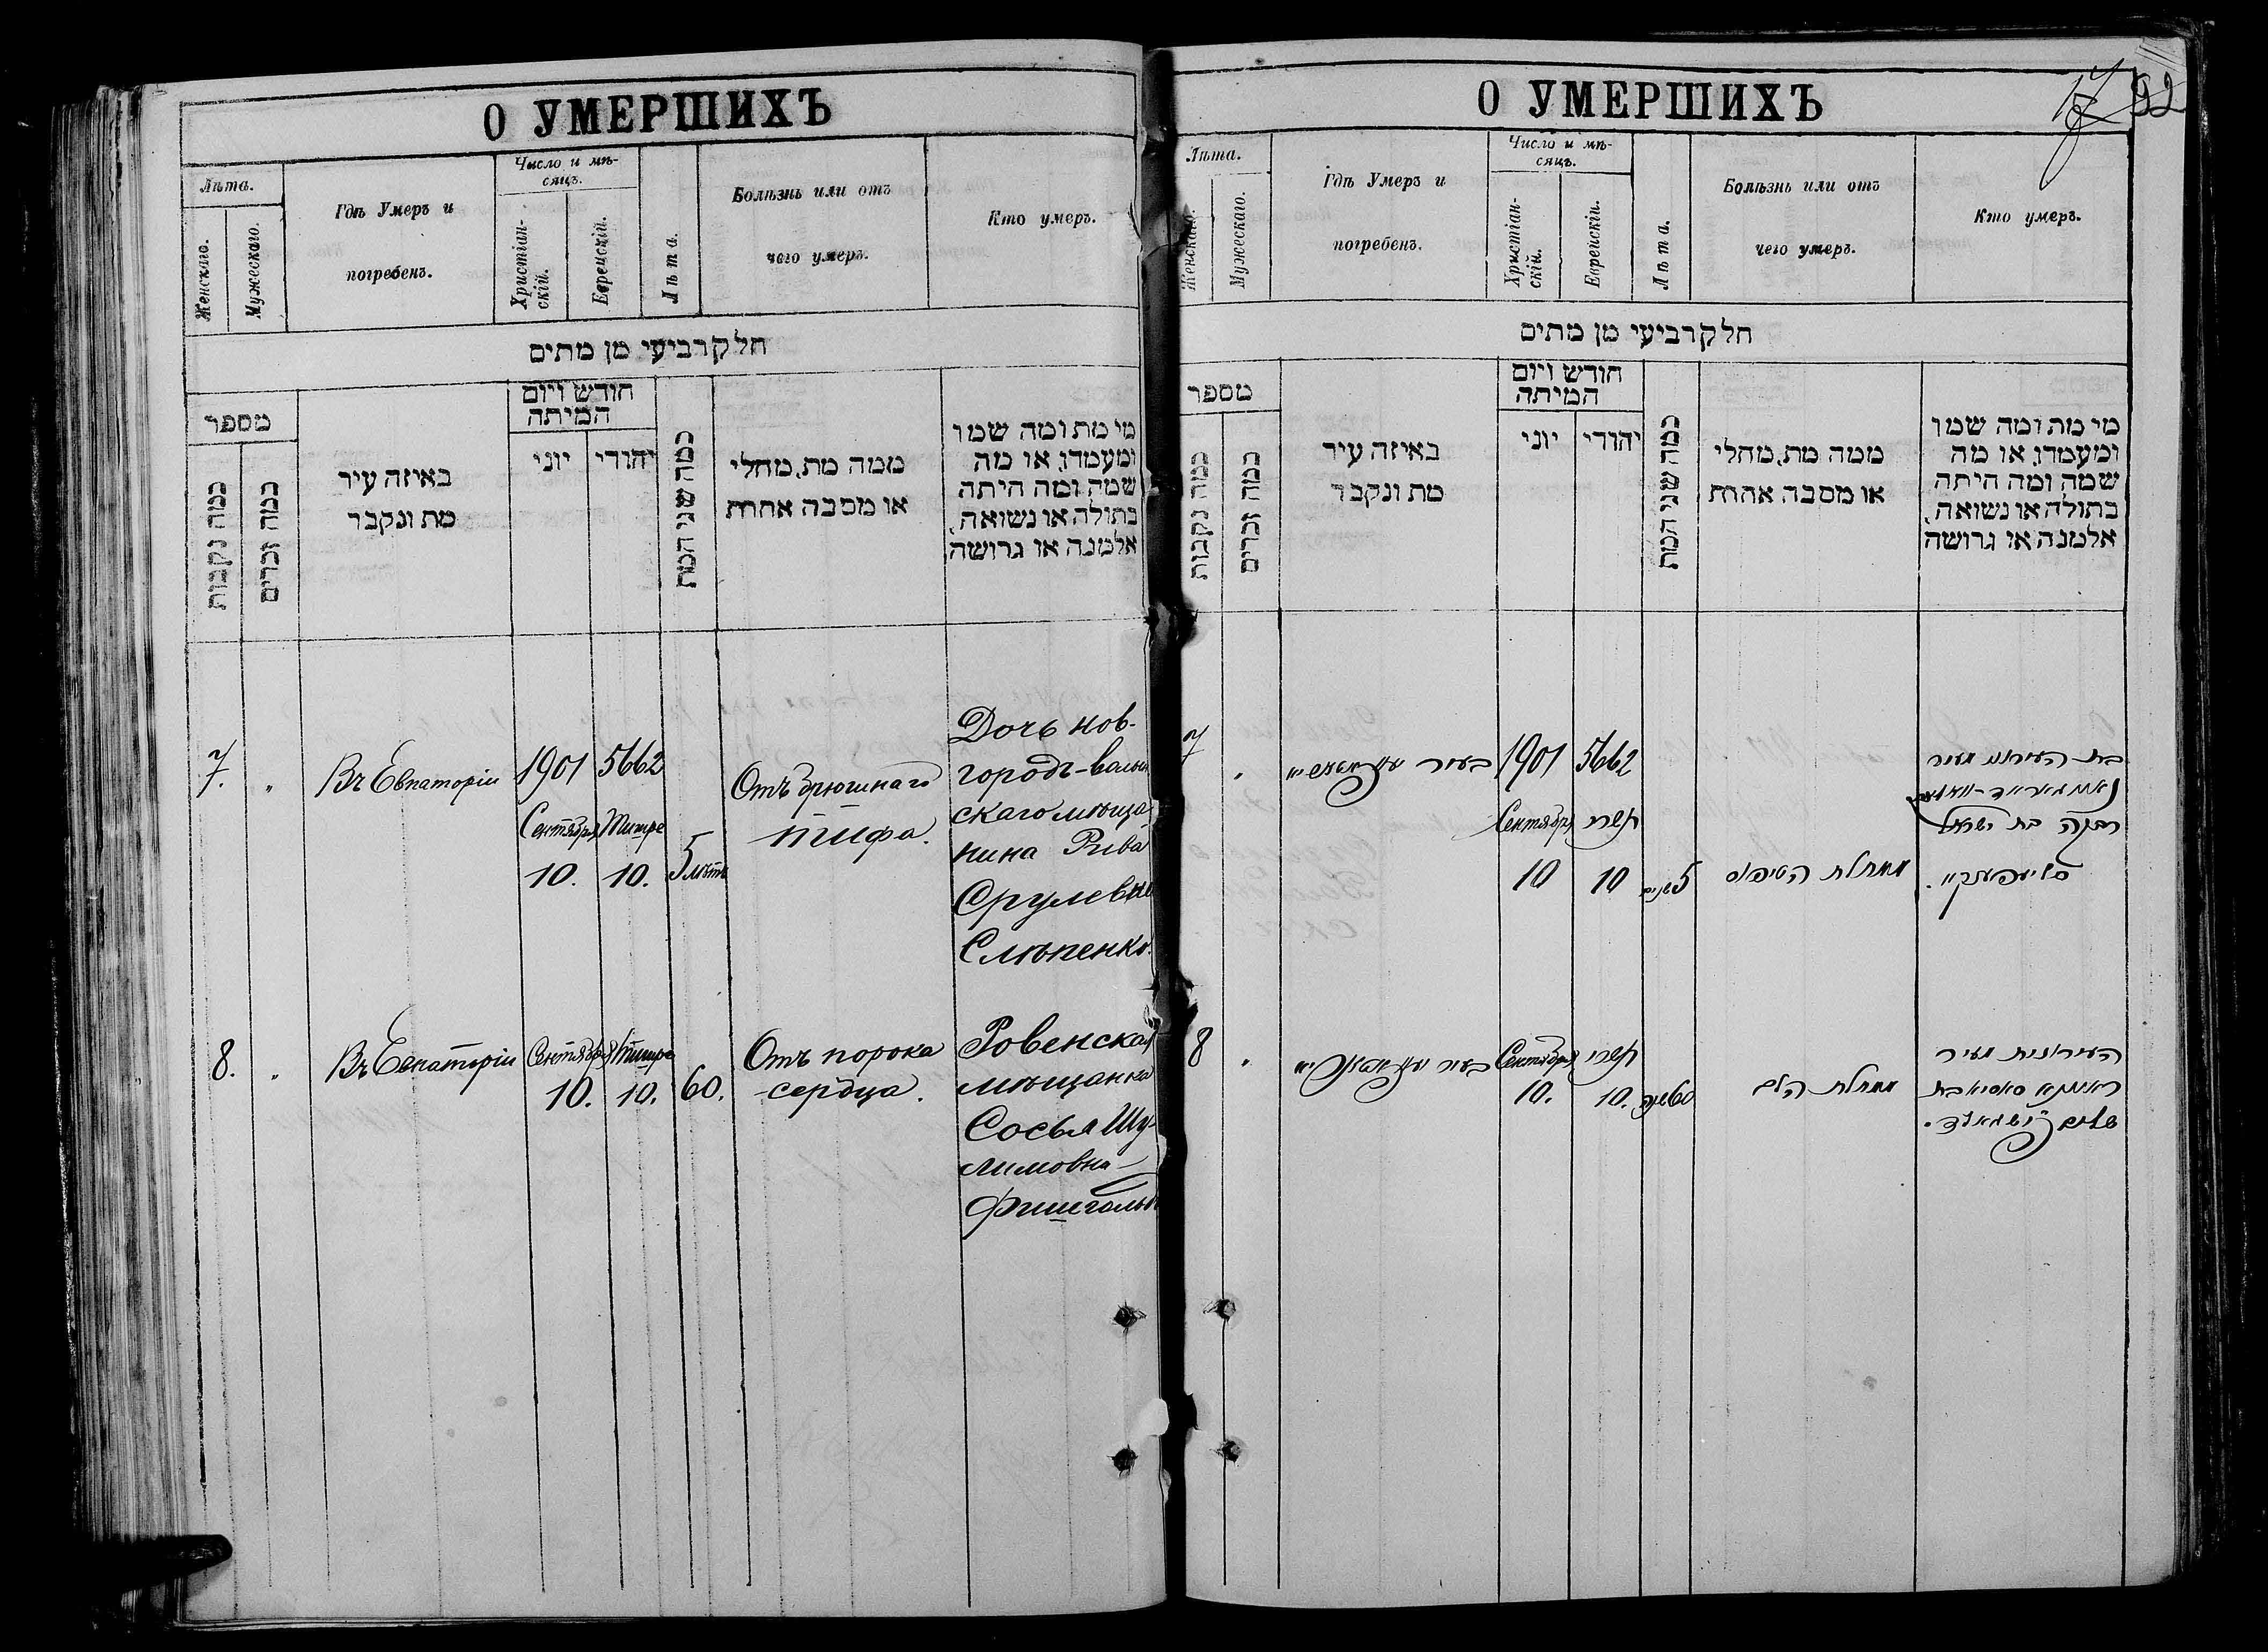 О УМЕРШИХЪ
Лѣта.
Женскаго.
Мужескаго.
Гдѣ Умеръ и
погребенъ.
Число и мѣ-
сяцъ.
Христіан-
скій.
Еврейскій.
Лѣта.
Болѣзнь или отъ
чего умеръ.
Кто умеръ.
חלק רביעי מן מתים
מספר
כמה נקבות
כמה זכרים
באיזה עיר
מת ונקבר
חודש ויום
המיתה
יוני
יהודי
כמה שני המת
ממה מת, מחלי
או מסבה אחרת
מי מת ומה שמו
ומעמדו, או מה
שמה ומה היתה
בתולה או נשואה,
אלמנה או גרושה
7. "
Въ Евпаторіи
1901
Сентября
10.
5662
Тишре
10.
5 лѣтъ
Отъ брюшнаго
тифа.
Дочь нов-
городъ-волын
скаго мѣща
нина Рива
Срулевна
Слѣпенко.
8. "
Въ Евпаторіи
Сентября
10.
Тишре
10.
60.
Отъ порока
сердца.
Ровенская
мѣщанка
Сосья Шу-
лимовна
Фишгольдъ
О УМЕРШИХЪ
92
Лѣта.
Женскаго.
Мужескаго.
Гдѣ Умеръ и
погребенъ.
Число и мѣ-
сяцъ.
Христіан-
скій.
Еврейскій.
Лѣта.
Болѣзнь или отъ
чего умеръ.
Кто умеръ.
חלק רביעי מן מתים
מספר
כמה נקבות
כמה זכרים
באיזה עיר
מת ונקבר
חודש ויום
המיתה
יוני
יהודי
כמה שני המת
ממה מת, מחלי
או מסבה אחרת
מי מת ומה שמו
ומעמדו, או מה
שמה ומה היתה
בתולה או נשואה,
אלמנה או גרושה
7 "
בעיר
1901
Сентября
10
5662
תשרי
10
5 שנים
מחלת הטיפוס
בת העירוני מעיר
רבקה בת ישראל
8 "
בעיר
Сентября
10.
תשרי
10.
60 שנה
מחלת הלב
העירונית מעיר
ראוונא סאסיא בת
שלום פישגאלד.